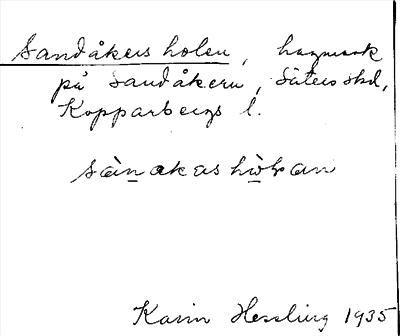 Sandåkers holen, hagmark
på Sandåkern, Säters skd,
Kopparbergs l.
sàn̲akashò̲ɽan
Karin Hessling 1935